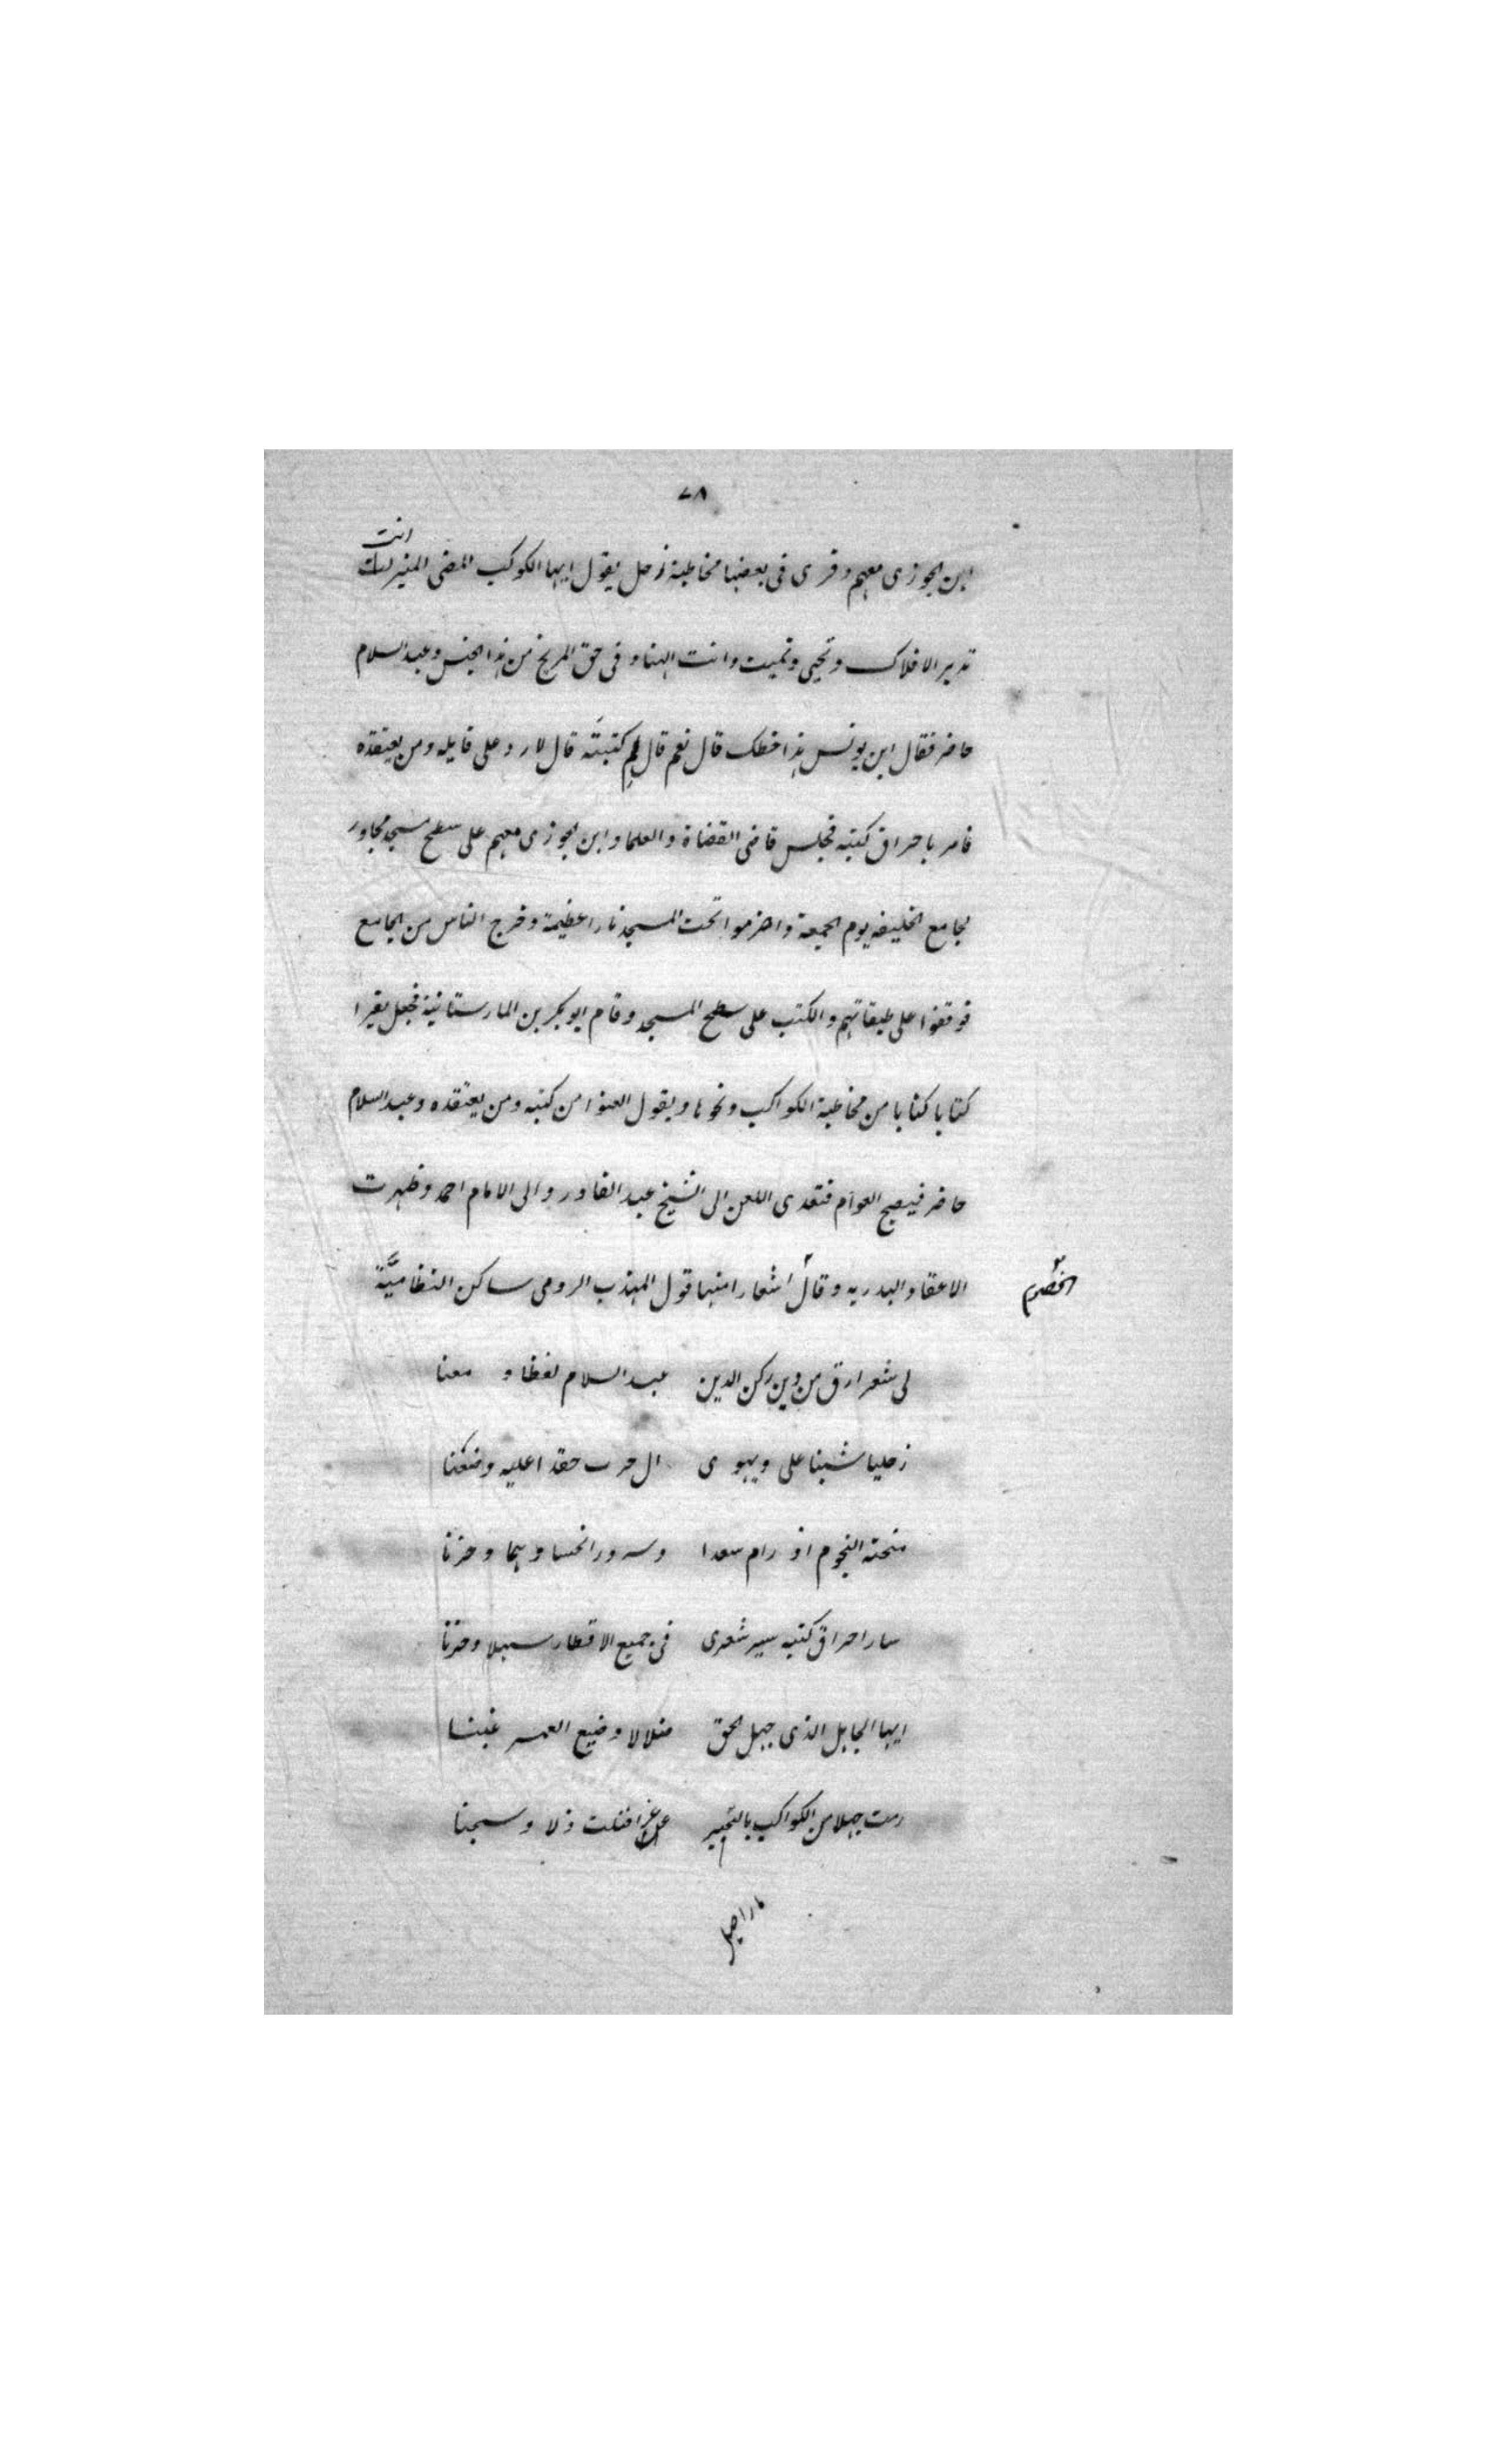 ٧٨
انت
ابن الجوزى معهم وقرى فى بعضها مخاطبة زحل يقول ايها الكوكب المضى المنير
تدبر الافلاك وتحيى وتميت وانت الهنا وفى حق المريخ من هذا الجنس وعبد السلام
حاضر فقال ابن يونس هذا خطك قال نعم قال لم كتبته قال لارد على قايله ومن يعتقده
فامر باحراق كتبه فجلس قاضى القضاة والعلما وابن الجوزى معهم على سطح مسجد مجاور
لجامع الخليفه يوم الجمعة واضرموا تحت المسجد نارا عظيمة وخرج الناس من الجامع
فوقفوا على طبقاتهم والكتب على سطح المسجد وقام ابو بكر بن المارستانية فجعل يقرا
كتابا كتابا من مخاطبة الكواكب ونحوها ويقول العنوا من كتبه ومن يعتقده وعبد السلام
حاضر فيصيح العوام فتعدى اللعن الى الشيخ عبد القادر والى الامام احمد وظهرت
الاعقاد البدريه وقال اشعارا منها قول المهذب الرومى ساكن النظاميَّة
الخصوم
لى شعر ارق من دين ركن الدين عبد السلام لفظا و معنا
زحليا شنا على ويهوى ال حرب حقدا عليه وضغنا
منحته النجوم اذ رام سعدا وسرورا نحسا وهما وحزنا
سار احراق كتبه سير شعرى فى جميع الاقطار سهلا وحزنا
ايها الجاهل الذى جهل الحق ضلالا وضيع العمر غبنا
رمت جهلا من الكواكب بالتبخير عزا فنلت ذلا وسجنا